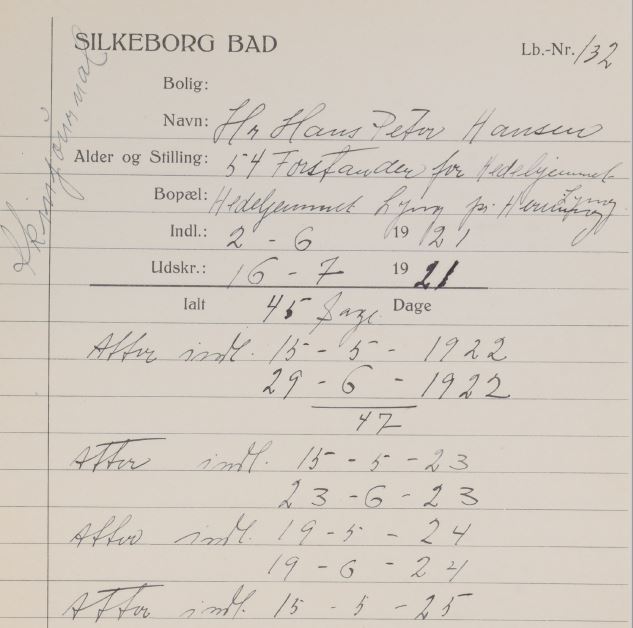 SILKEBORG BAD
Lb.-Nr. 132
Bolig:
Navn: Hr Hans Peter Hansen
Alder og Stilling: 54 Forstander for Hedehjemmet
Bopæl: Hedehjemmet Lyng pr.
Indl.: 2 - 6 1921
Udskr.: 16 - 7 1921
Ialt 45 Dage Dage
Atter indl. 15 - 5 - 1922
29 - 6 - 1922
47
Atter indl. 15 - 5 - 23
23 - 6 - 23
Atter indl. 19 - 5 - 24
19 - 6 - 24
Atter indl. 15 - 5 - 25